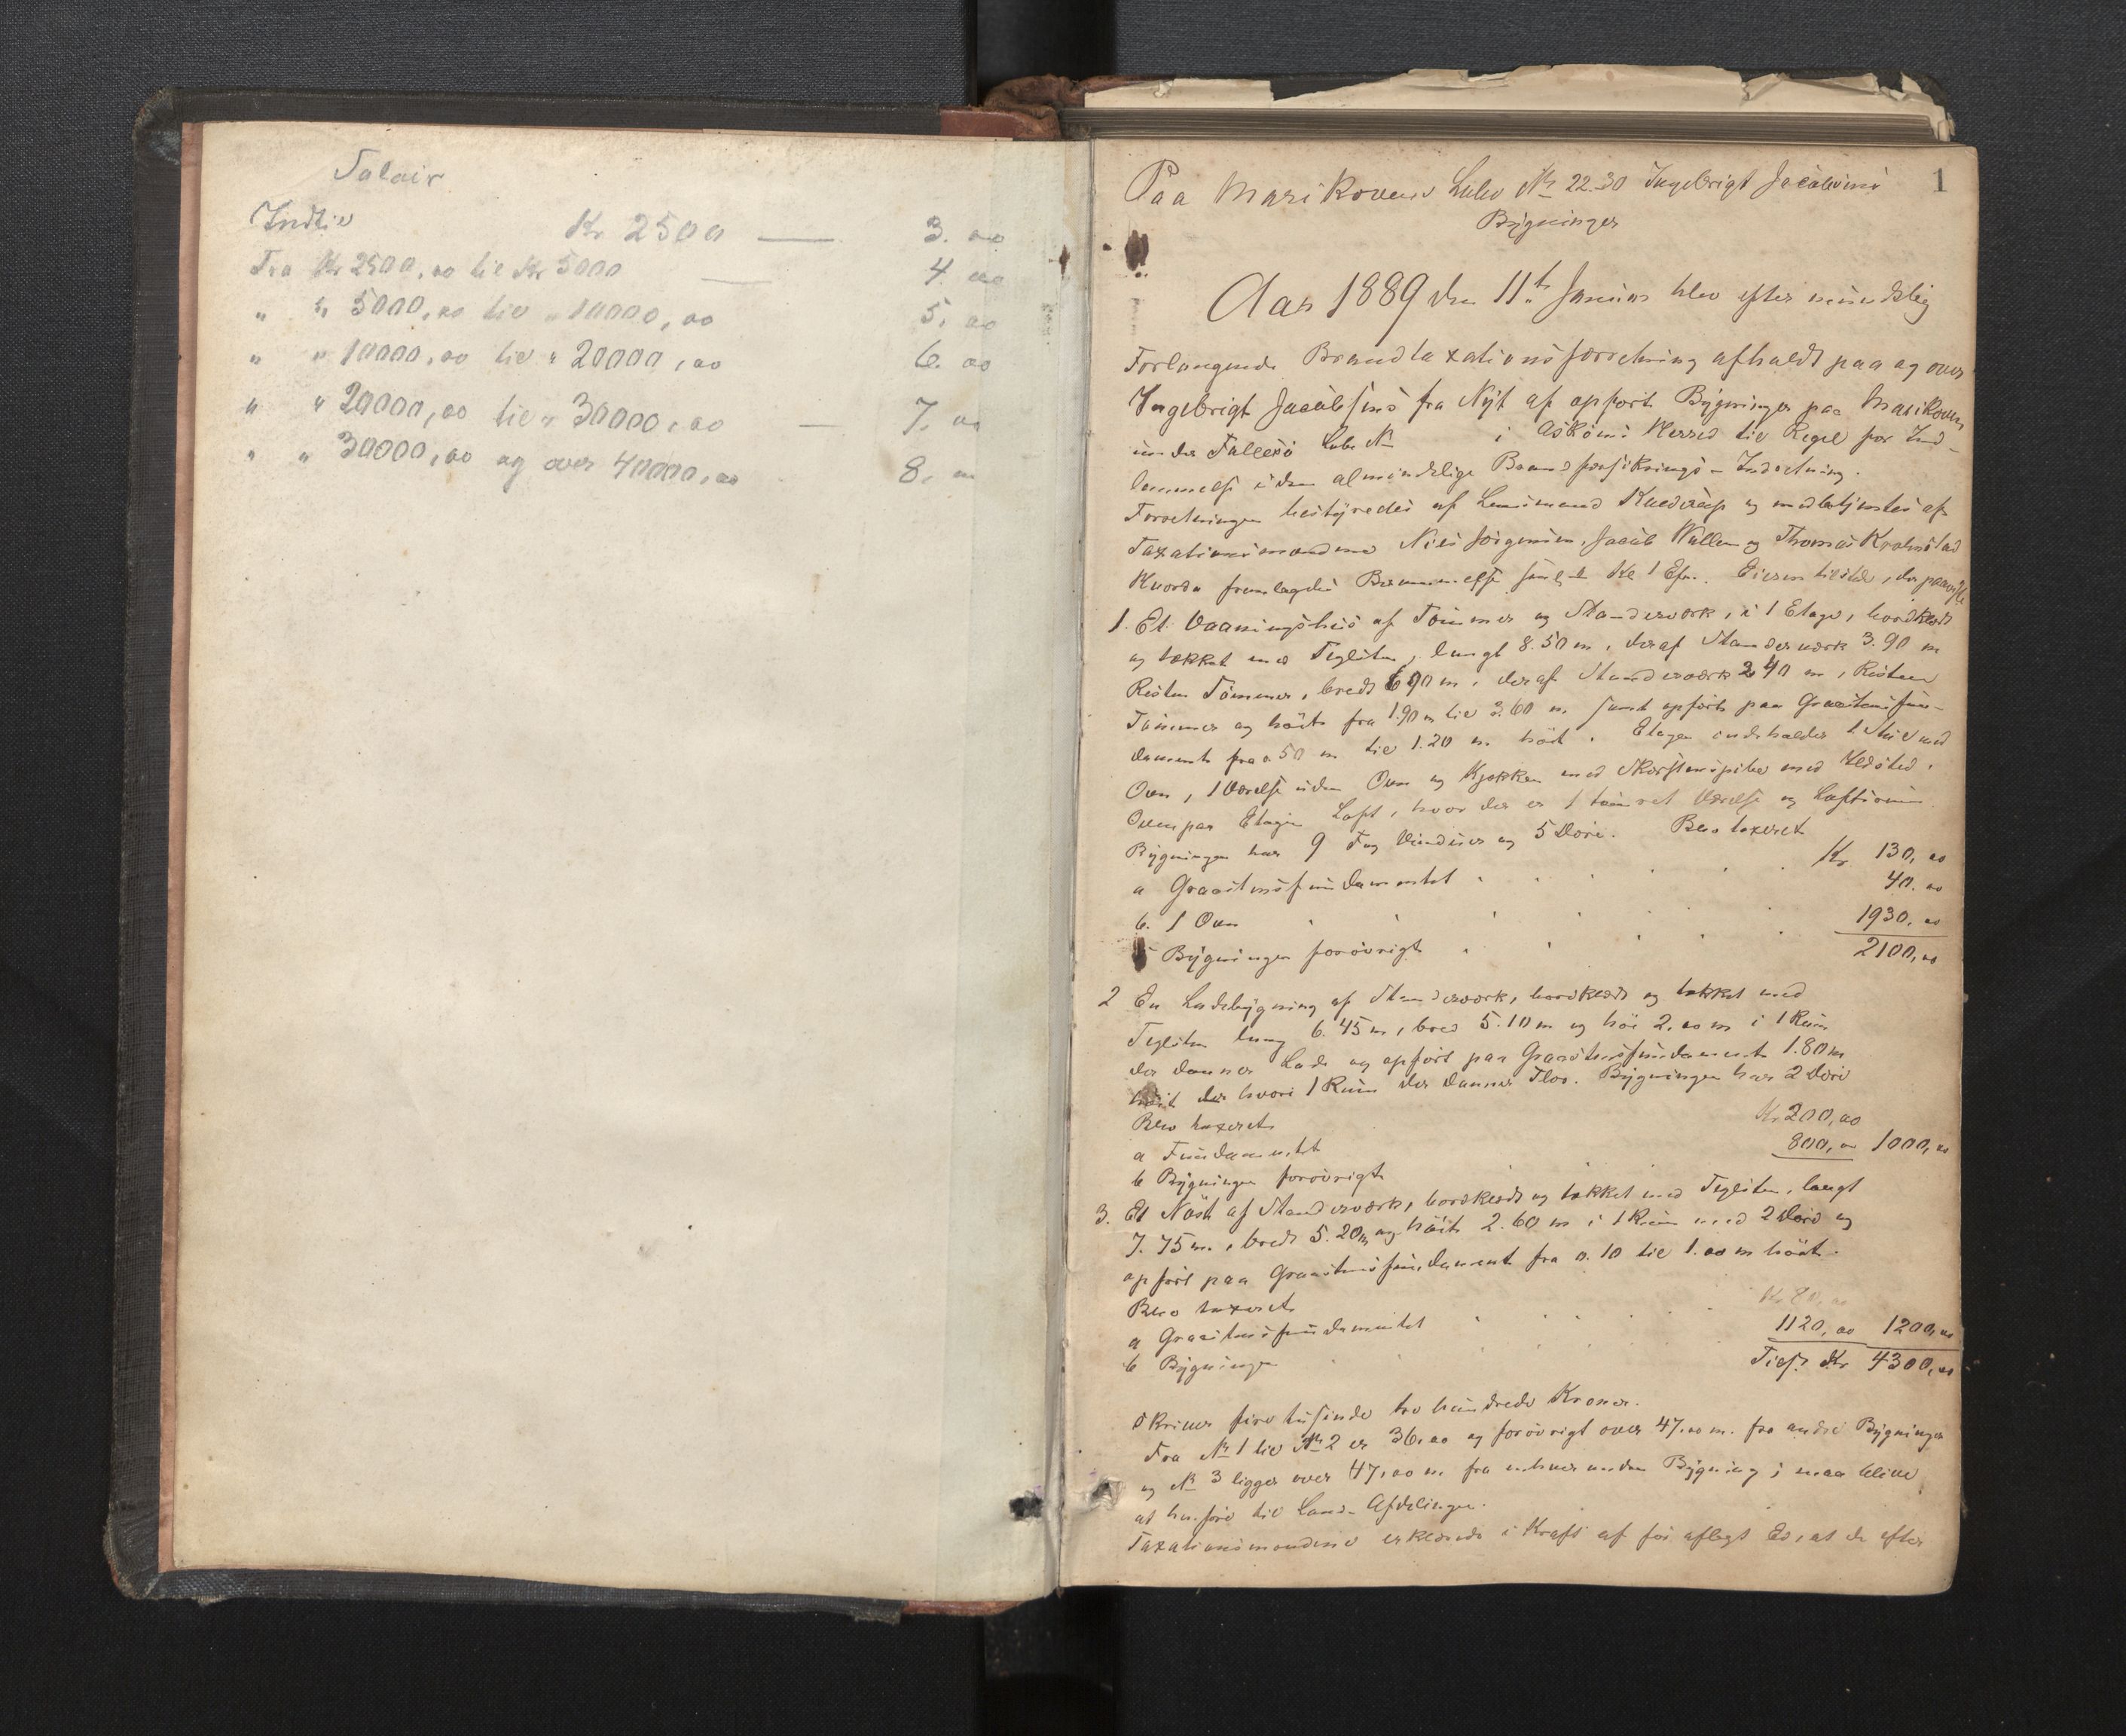 Salair
Indtil Kr 2500 — 3. oo
Fra Kr 2500, oo til Kr 5000 — 4. oo
" " 5000, oo til " 10000, oo 5. oo
" " 10000, oo til " 20000, oo 6. oo
" " 20000, oo til " 30000, oo — 7. oo
" " 30000, oo og over 40000, oo 8. oo
1
Paa Marikoven Løbe No 22.30 Ingebrigt Jacobsens
Bygninger
Aar 1889 den 11te Januar blev efter mundtlig
Forlangende Brandtaxationsforretning afholdt paa og over
Ingebrigt Jacobsens fra Nyt af opført Bygninger paa Marikoven
under Follesø Løbe No i Askøens Herred til Regel for Ind-
lemmelse i den almindelige Brandforsikrings-Indretning.
Forretningen bestyredes af Lensmand og medbetjentes af
Taxationsmændene Nils Jørgensen, Jacob Wallem og Thomas
Hvorda fremlagdes Berammelse Kl 1 Efm. Eieren tilstede, der paaviste
1. Et Vaaningshus af Tømmer og Standerværk, i 1 Etage, bordklædt
og tækket med Teglsten, langt 8.50 m, deraf Standerværk 3.90 m
Resten Tømmer, bredt 6 90 m, deraf Standerværk 2 40 m, Resten
Tømmer og høit fra 1.90 m til 3.60 m. samt opført paa Graastensfun-
dament fra o.50 m til 1.20 m høit. Etagen indeholder 1 Stue med
Ovn, 1 Værelse uden Ovn og Kjøkken med Skorstenspibe med Ildsted.
Ovenpaa Etagen Loft, hvor der er 1 tømret Værelse og Loftsrum
Bygningen har 9 Fag Vinduer og 5 Døre. Blev taxeret
a Graastensfundamentet . . . . . Kr 130, oo
b. 1 Ovn . . . . . 40. oo
c Bygningen forøvrigt . . . . . 1930. oo
2100, oo
2 En Ladebygning af Standerværk, bordklædt og tækket med
Teglsten lang 6.45 m, bred 5.10 m og høi 2.oo m i 1 Rum
der danner Lade og opført paa Graastensfundament 1.80 m
høit der hvori 1 Rum der danner Flor. Bygningen har 2 Døre
Blev taxeret
a Fundamentet Kr 200, oo
b Bygningen forøvrigt . . . 800, oo 1000, oo
3. Et Nøst af Standerværk, bordklædt og tækket med Teglsten, langt
7.75 m, bredt 5.20 m og høit 2.60 m i 1 Rum med 2 Døre og
opført paa Graastensfundament fra o.10 til 1.oo m høit.
Blev taxeret
a Graastensfundamentet . . . Kr 80, oo
b Bygningen . . . 1120, oo 1200, oo
Tils. Kr 4300, oo
skriver fire tusinde tre hundrede Kroner.
Fra No 1 til No 2 er 36,oo og forøvrigt over 47,oo m. fra andre Bygninger
og No 3 ligger over 47,oo m fra enhver anden Bygning; maa blive
at henføre til Land-Afdelingen.
Taxationsmændene erklærede i Kraft af før aflagt Ed, at de efter